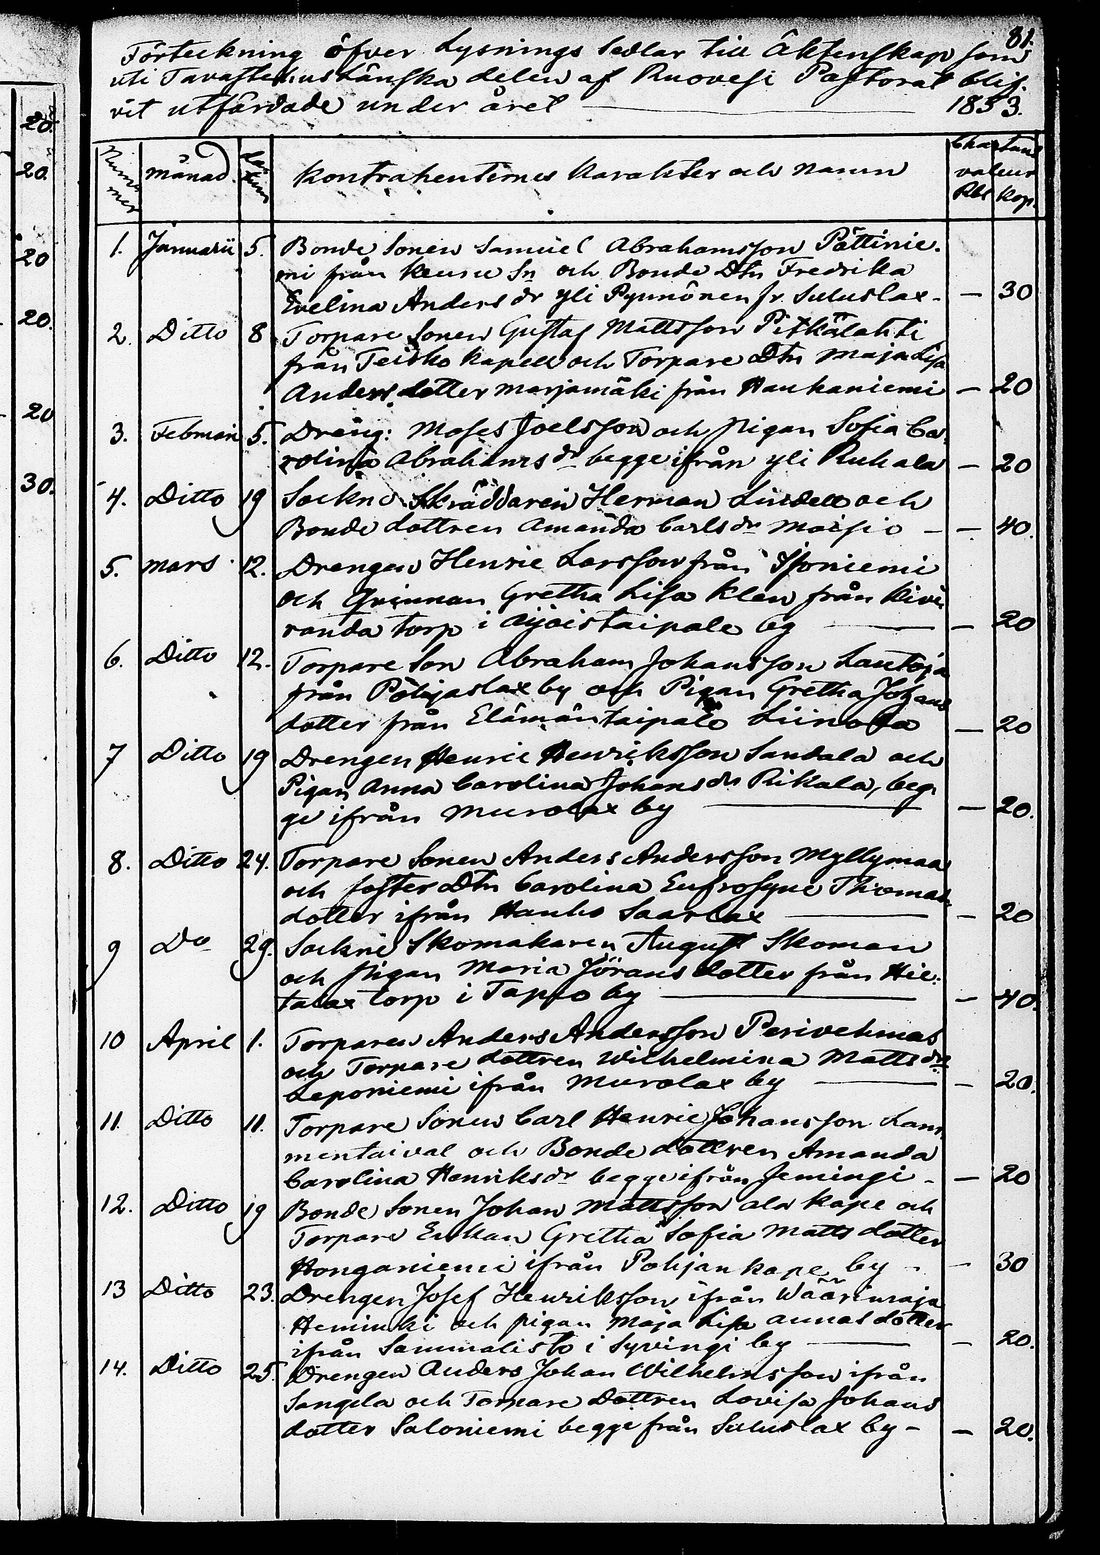 81.
Förteckning öfver Lysnings Sedlar till Äktenskap som
uti Tavastehuslänska delen af Ruovesi Pastorat blif-
vit utfärdade under året 1853.
Nummer månad datum Kontrahenternes Karakter och Namn Charta valeur Rbl kop.
1. Januarii 5. Bonde Sonen Samuel Abrahamsson Pättinie-
mi från Keuru Sn och Bonde Dtr Fredrika
Evelina Anders dr yli Pynnönen fr. Suluslax - — 30
2. Ditto 8 Torpare Sonen Gustaf Mattsson Pitkälahti
från Teisko Kapell och Torpare Dtr Maja Lisa
Anders dotter Marjamäki från Haukaniemi — 20
3. Februari 5. Dräng: Moses Joelsson och Pigan Sofia Ca-
rolina Abrahams dr begge ifrån yli Ruhala — 20
4. Ditto 19 Sockne Skräddaren Herman Lindell och
Bonde dottren Amanda Carls dr Maisio - — 40.
5. mars 12. Drengen Henric Larsson från
och Qvinnan Gretha Lisa Klen från Kivi
randa torp i Äijöistaipale by — 20
6. Ditto 12. Torpare Son Abraham Johansson Lautoja
från Pohjaslax by och Pigan Gretha Johans
dotter från Elämäntaipale Liinoja — 20
7 Ditto 19 Drengen Henric Henriksson Sandala och
Pigan Anna Carolina Johans dr Rikala, beg-
ge ifrån Murolax by — 20.
8. Ditto 24. Torpare Sonen Anders Andersson Myllymaa
och foster Dtr Carolina Eufrosyne Thomas
dotter ifrån Hanho Saarlax — 20
9 Do 29. Sockne Skomakaren August Skoman
och Pigan Maria Jörans dotter från Hie-
talax torp i Tapio by — 40.
10 April 1. Torparen Anders Andersson Perivehmas
och Torpare dottren Wilhelmina Matts dr
Leponiemi ifrån Murolax by — 20.
11. Ditto 11. Torpare Sonen Carl Henric Johansson Lam-
mentaival och Bonde dottren Amanda
Carolina Henriks dr begge ifrån Jemingi - — 20
12. Ditto 19 Bonde Sonen Johan Mattsson ala Kape och
Torpare Enkan Gretha Sofia Matts dotter
Honganiemi ifrån Pohjan Kape by - — 30
13 Ditto 23. Drengen Josef Henriksson ifrån Wäärinmaja
Heminki och pigan Maja Lisa Annas dotter
ifrån Sammalisto i Syvingi by — 20.
14. Ditto 25. Drengen Anders Johan Wilhelmsson ifrån
Sangela och Torpare Dottren Lovisa Johans
dotter Saloniemi begge från Suluslax by - — 20.
20.
20.
20
20.
20
30.